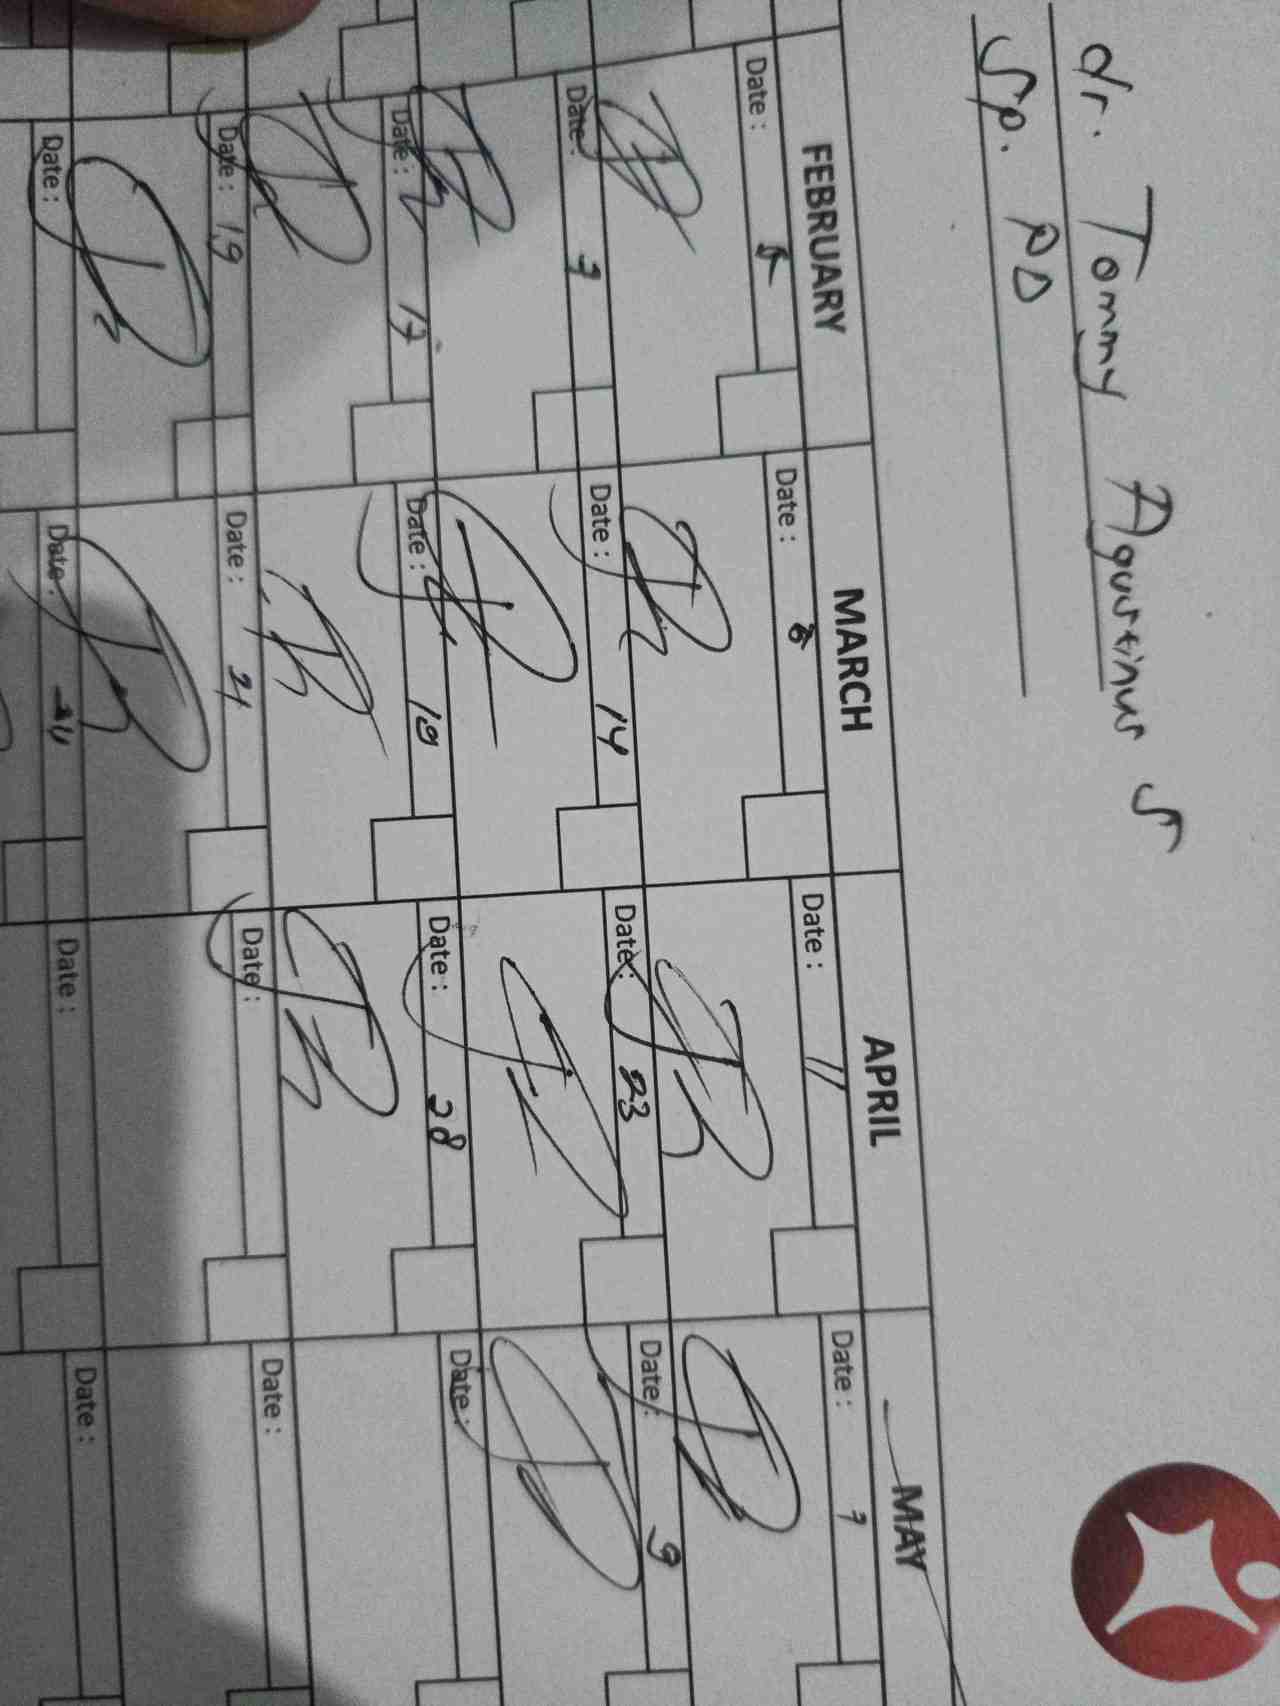 dr. Tommy Agustinus S
Sp. PD
FEBRUARY MARCH APRIL MAY
Date : Date : 8 Date : 11 Date : 7
Date : 7 Date : 14 Date : 23 Date : 9
Date : 17 Date : 19 Date : 28 Date :
Date : 19 Date : 21 Date : Date :
Date : Date : Date : Date :